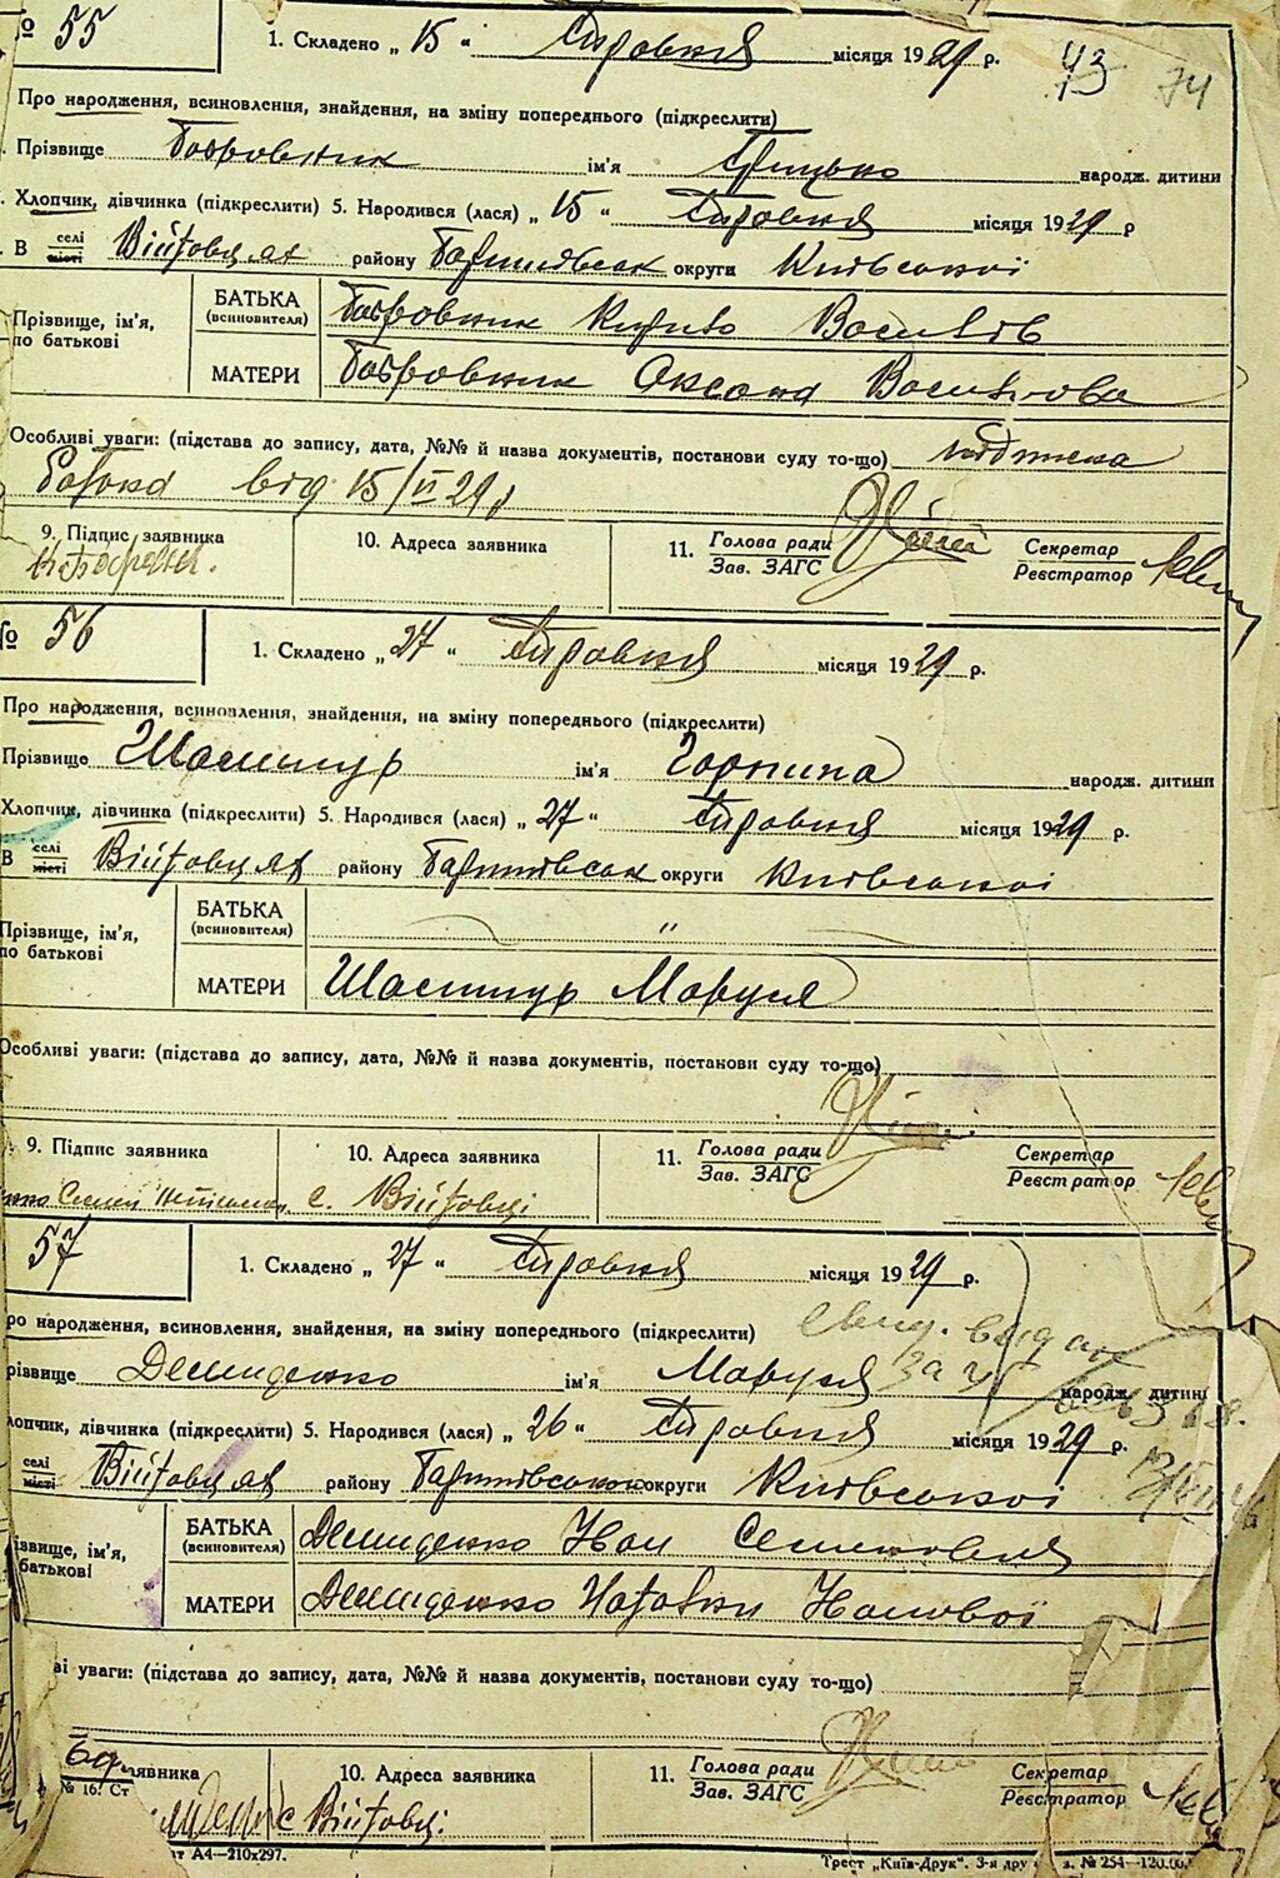 № 55
1. Складено „ 15 “ Травня місяця 1929 р. 73 74
Про народження, всиновлення, знайдення, на зміну попереднього (підкреслити)
Прізвище Бобровник ім'я Грицько народж. дитини
Хлопчик, дівчинка (підкреслити) 5. Народився (лася) „ 15 “ Травня місяця 1929 р
В селі місті Війтовцях району Баришівськ округи Київської
Прізвище, ім'я, по батькові
БАТЬКА (всиновителя) Бобровник Кирило Васильів
МАТЕРИ Бобровник Оксана Васильова
Особливі уваги: (підстава до запису, дата, №№ й назва документів, постанови суду то-що)
від 15/VI 29 р
9. Підпис заявника
10. Адреса заявника
11. Голова ради Зав. ЗАГС
Секретар Реєстратор
№ 56
1. Складено „ 27 “ Травня місяця 1929 р.
Про народження, всиновлення, знайдення, на зміну попереднього (підкреслити)
Прізвище Шасттур ім'я Горпина народж. дитини
Хлопчик, дівчинка (підкреслити) 5. Народився (лася) „ 27 “ Травня місяця 1929 р.
В селі місті Війтовцях району Баришівськ округи Київської
Прізвище, ім'я, по батькові
БАТЬКА (всиновителя) "
МАТЕРИ Маруся
Особливі уваги: (підстава до запису, дата, №№ й назва документів, постанови суду то-що)
9. Підпис заявника
10. Адреса заявника
с. Війтовці
11. Голова ради Зав. ЗАГС
Секретар Реєстратор
57
1. Складено „ 27 “ Травня місяця 1929 р.
ро народження, всиновлення, знайдення, на зміну попереднього (підкреслити)
різвище Демиденко ім'я Маруся за народж. дитині
лопчик, дівчинка (підкреслити) 5. Народився (лася) „ 26 “ Травня місяця 1929 р.
селі місті Війтовцях району Баришівської округи Київської
ізвище, ім'я, батькові
БАТЬКА (всиновителя) Демиденко Іван Семенович
МАТЕРИ Демиденко Наталки Іванової
ві уваги: (підстава до запису, дата, №№ й назва документів, постанови суду то-що)
аявника
№ 16. Ст
10. Адреса заявника
с Війтовці
11. Голова ради Зав. ЗАГС
Секретар Реєстратор
ат А4—210х297.
Трест „Київ-Друк“. 3-я дру
№ 254—120.00